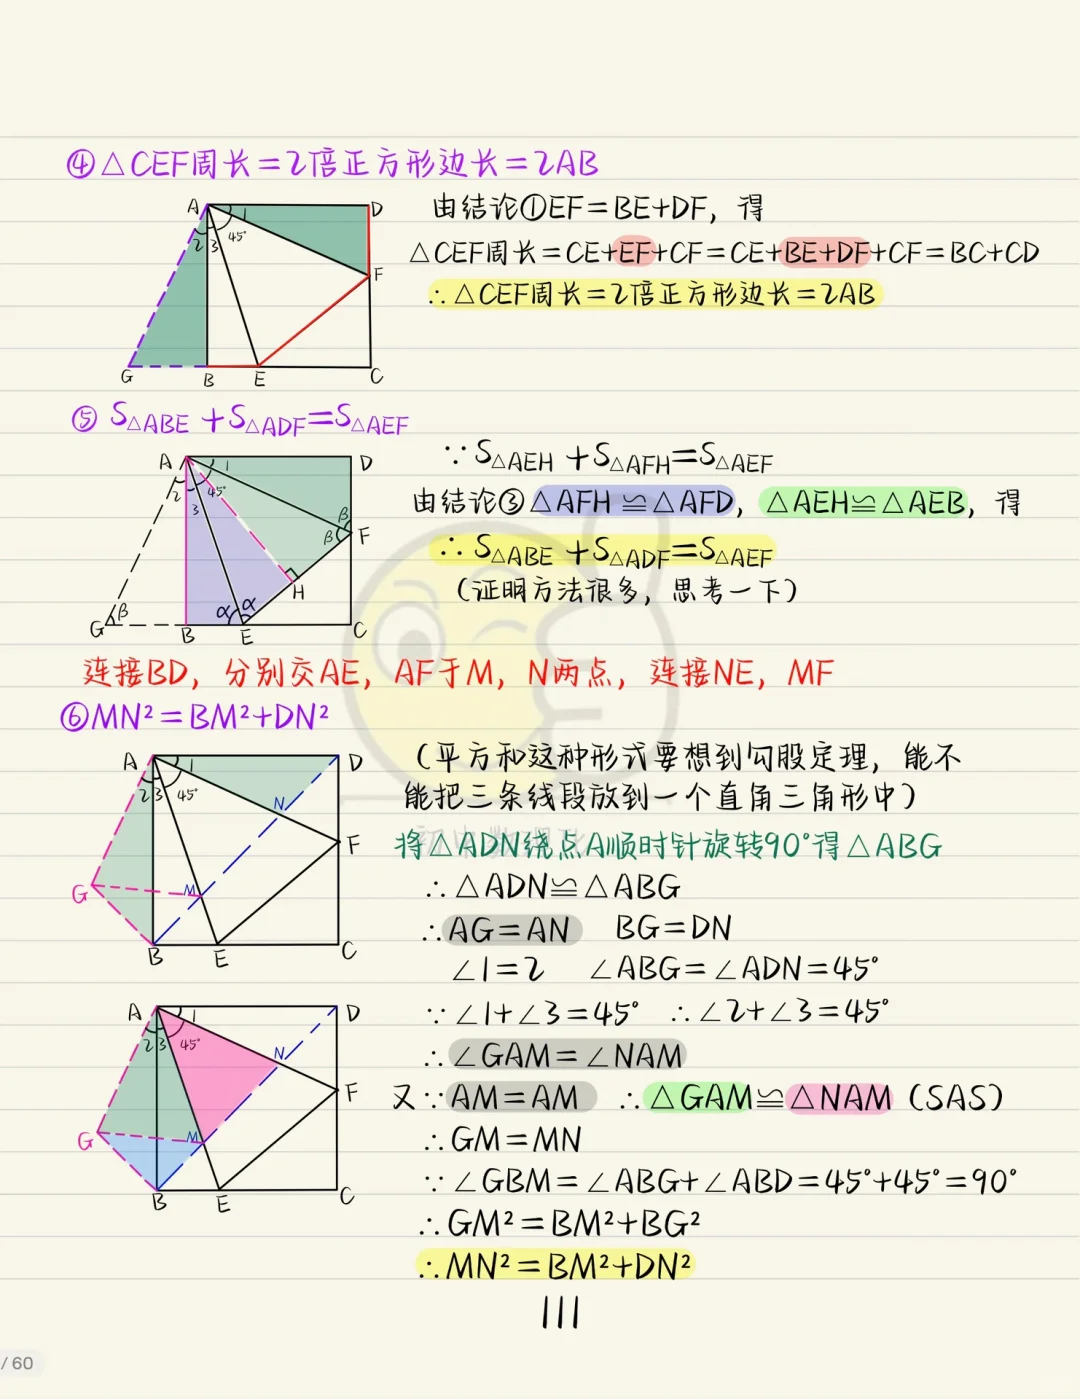 ④△CEF周长=2倍正方形边长=2AB
A D 1 2 3 45° F G B E C
由结论①EF=BE+DF，得
△CEF周长=CE+EF+CF=CE+BE+DF+CF=BC+CD
∴△CEF周长=2倍正方形边长=2AB
⑤ S△ABE +S△ADF=S△AEF
A D 1 2 45° 3 β β F H α α β G B E C
∵S△AEH +S△AFH=S△AEF
由结论③△AFH ≌△AFD，△AEH≌△AEB，得
∴S△ABE +S△ADF=S△AEF
（证明方法很多，思考一下）
连接BD，分别交AE，AF于M，N两点，连接NE，MF
⑥MN²=BM²+DN²
A D 1 2 3 45° N F G M B E C
（平方和这种形式要想到勾股定理，能不
能把三条线段放到一个直角三角形中）
初中数理化
将△ADN绕点A顺时针旋转90°得△ABG
∴△ADN≌△ABG
∴AG=AN BG=DN
∠1=2 ∠ABG=∠ADN=45°
A D 1 2 3 45° N F G M B E C
∵∠1+∠3=45° ∴∠2+∠3=45°
∴∠GAM=∠NAM
又∵AM=AM ∴△GAM≌△NAM（SAS）
∴GM=MN
∵∠GBM=∠ABG+∠ABD=45°+45°=90°
∴GM²=BM²+BG²
∴MN²=BM²+DN²
111
/ 60